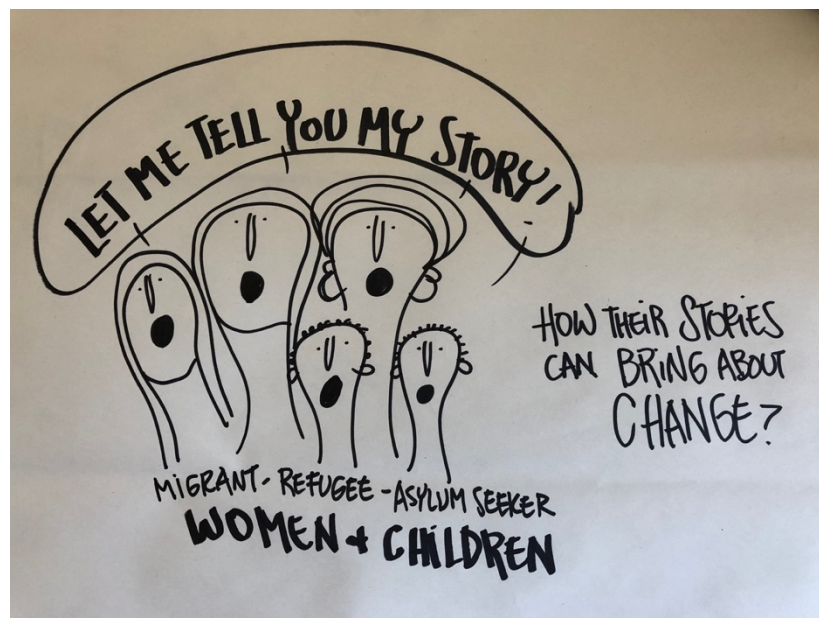 LET ME TELL YOU MY STORY!
HOW THEIR STORIES
CAN BRING ABOUT
CHANGE?
MIGRANT - REFUGEE - ASYLUM SEEKER
WOMEN + CHILDREN